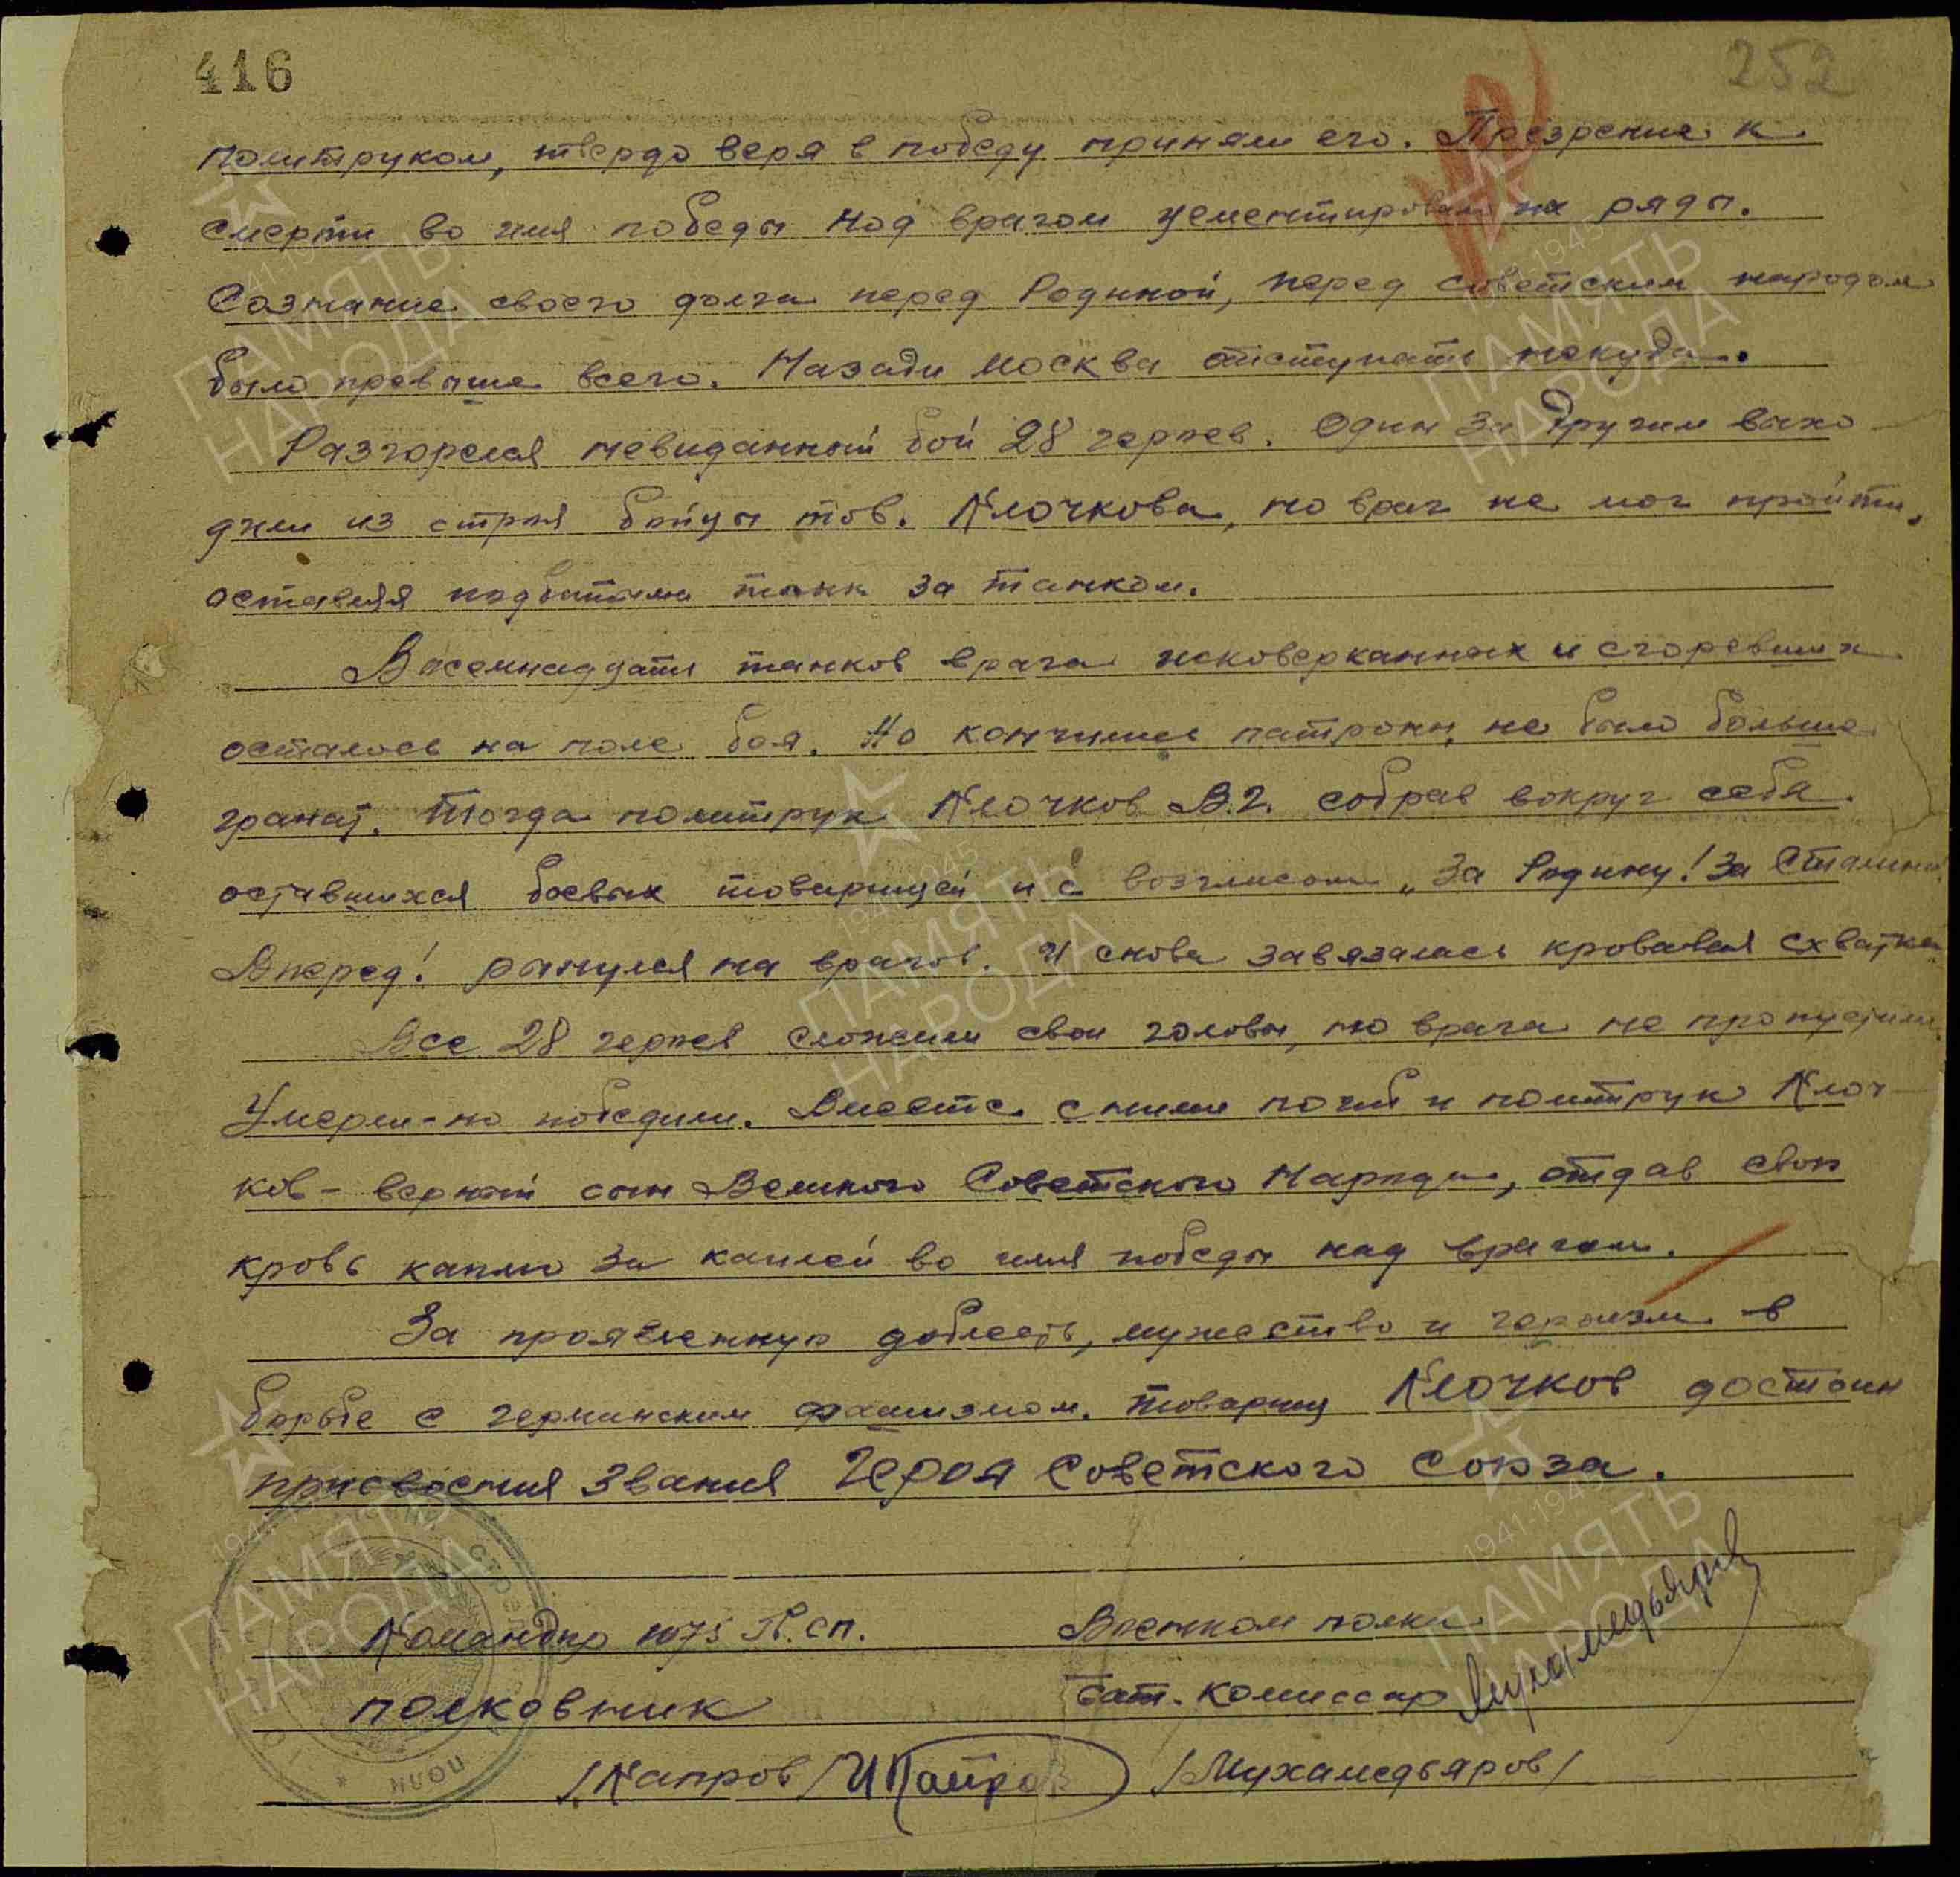 416
252
политруком, твердо веря в победу приняли его. Презрение к
смерти во имя победы над врагом цементировало их ряды.
Сознание своего долга перед Родиной, перед советским народом
было превыше всего. Назади Москва отступать некуда.
Разгорелся невиданный бой 28 героев. Один за другим выхо-
дили из строя бойцы тов. Клочкова, но враг не мог пройти,
оставляя подбитыми танк за танком.
Восемнадцать танков врага исковерканных и сгоревших
осталось на поле боя. Но кончились патроны, не было больше
гранат. Тогда политрук Клочков В.Г. собрав вокруг себя
оставшихся боевых товарищей и с возгласом „За Родину! За Сталина!
Вперед! ринулся на врагов. И снова завязалась кровавая схватка.
Все 28 героев сложили свои головы, но врага не пропустили.
Умерли-но победили. Вместе с ними погиб и политрук Клоч-
ков - верный сын Великого Советского Народа, отдав свою
кровь каплю за каплей во имя победы над врагом.
За проявленную доблесть, мужество и героизм в
борьбе с германским фашизмом. товарищ Клочков достоин
присвоения звания Героя Советского Союза.
Командир 1075 П.сп. Военком полка
полковник бат. комиссар Мухамедьяров
/Капров/ ИКапров /Мухамедьяров/
ПАМЯТЬ
НАРОДА
1941-1945